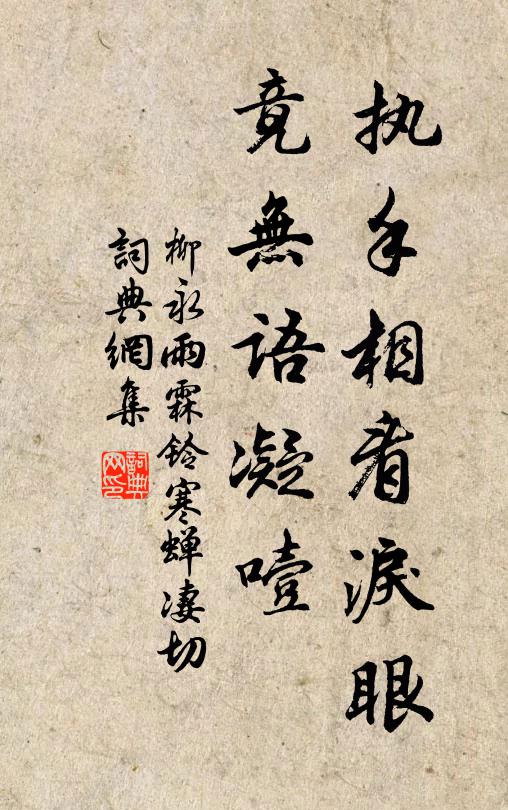 执手相看淚眼
竟無語凝噎
柳永雨霖鈴寒蝉凄切
詞典網集
詞典
网印